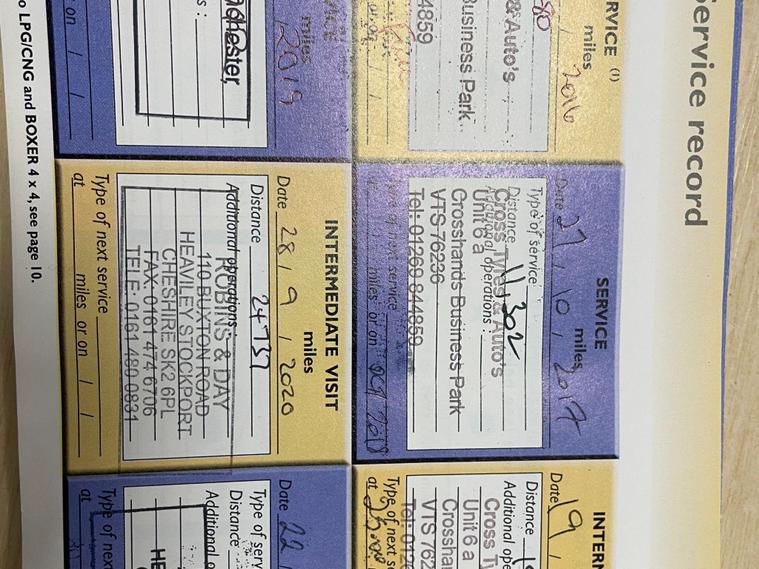 Service record
RVICE (1)
miles
2016
& Auto's
Business Park
4859
SERVICE
miles
Date 27 / 10 / 2017
Type of service
Distance 11302
Additional operations :
Cross Tyres & Auto's
Unit 6 a
Crosshands Business Park
VTS 76236
Tel: 01269 844859
Type of next service
at miles or on Oct 2018
INTERM
Date 19 /
Distance
Additional ope
Cross T
Unit 6 a
Crossha
VTS 762
Tel: 0126
Type of next se
at
miles
2019
on / /
INTERMEDIATE VISIT
miles
Date 28 / 9 / 2020
Distance 24757
Additional operations :
ROBINS & DAY
110 BUXTON ROAD
HEAVILEY STOCKPORT
CHESHIRE SK2 6PL
FAX: 0161 474 6706
TELE: 0161 480 0831
Type of next service
at miles or on / /
Date 22 /
Type of serv
Distance
Additional o
HE
Type of next
at
o LPG/CNG and BOXER 4 x 4, see page 10.